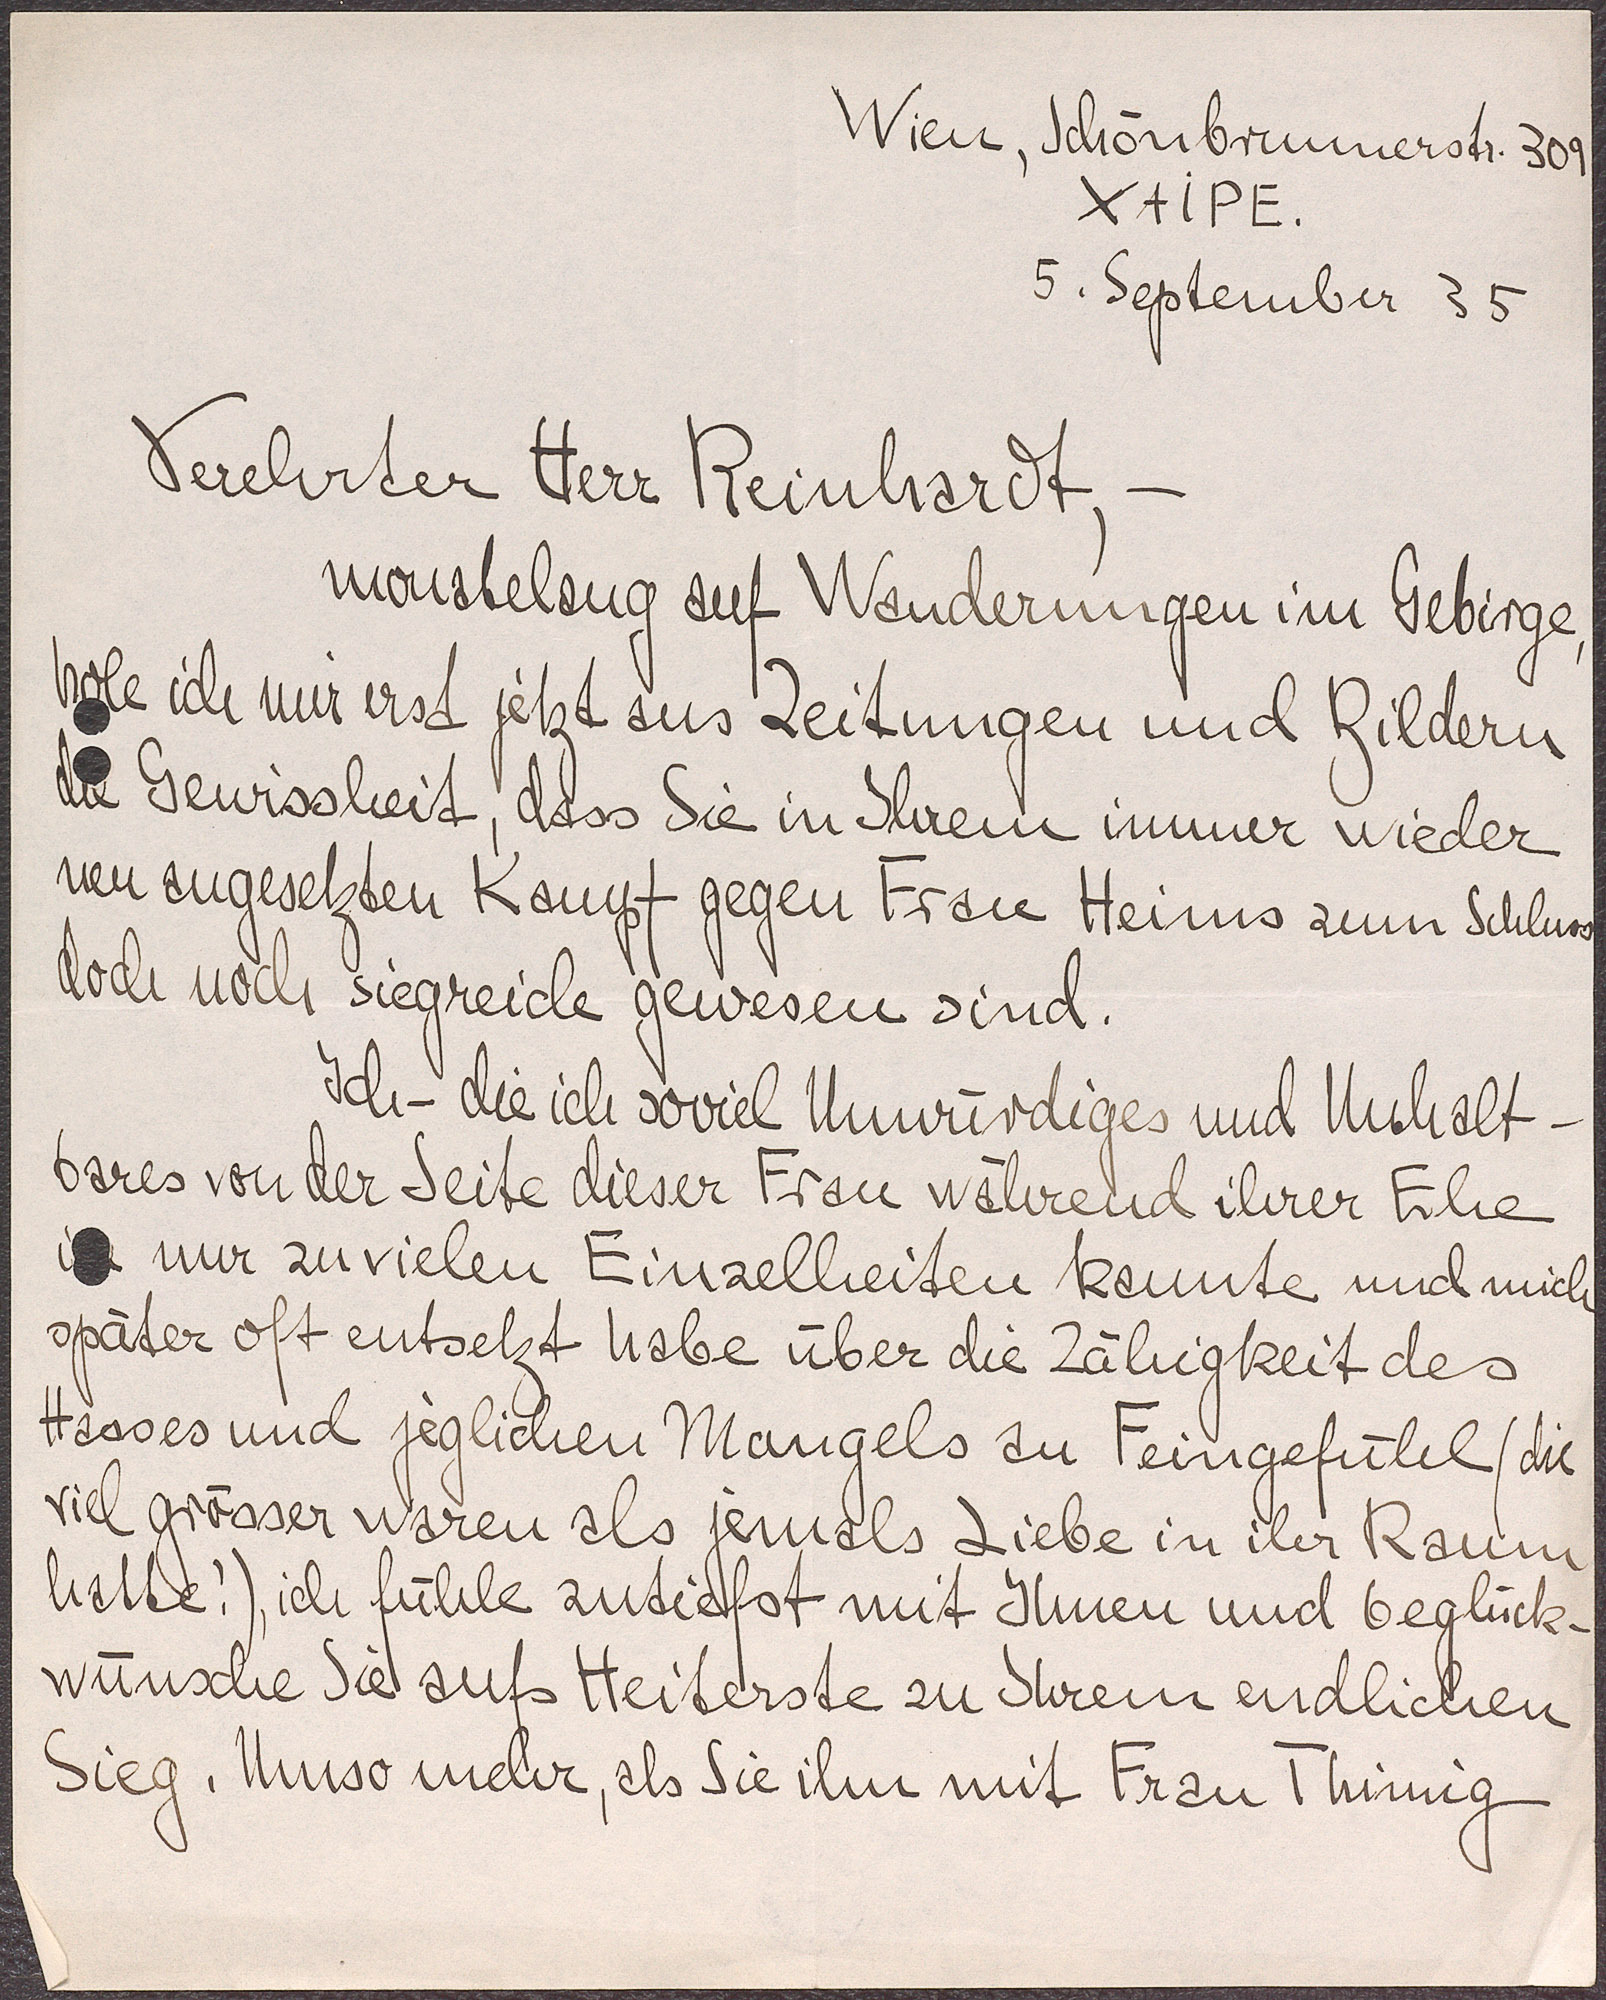 Wien, Schönbrunnerstr. 309
XAIPE.
5. September 35
Verehrter Herr Reinhardt, –
monatelang auf Wanderungen im Gebirge,
hole ich mir erst jetzt aus Zeitungen und Bildern
die Gewissheit, dass Sie in Ihrem immer wieder
neu angesetzten Kampf gegen Frau Heims zum Schluss
doch noch siegreich gewesen sind.
Ich – die ich soviel Unwürdiges und Unhalt-
bares von der Seite dieser Frau während ihrer Ehe
in nur zuvielen Einzelheiten kannte und mich
später oft entsetzt habe über die Zähigkeit des
Hasses und jeglichen Mangels an Feingefühl (die
viel grösser waren als jemals Liebe in ihr Raum
hatte!), ich fühle zutiefst mit Ihnen und beglück-
wünsche Sie aufs Heiterste zu Ihrem endlichen
Sieg. Umso mehr, als Sie ihn mit Frau Thimig